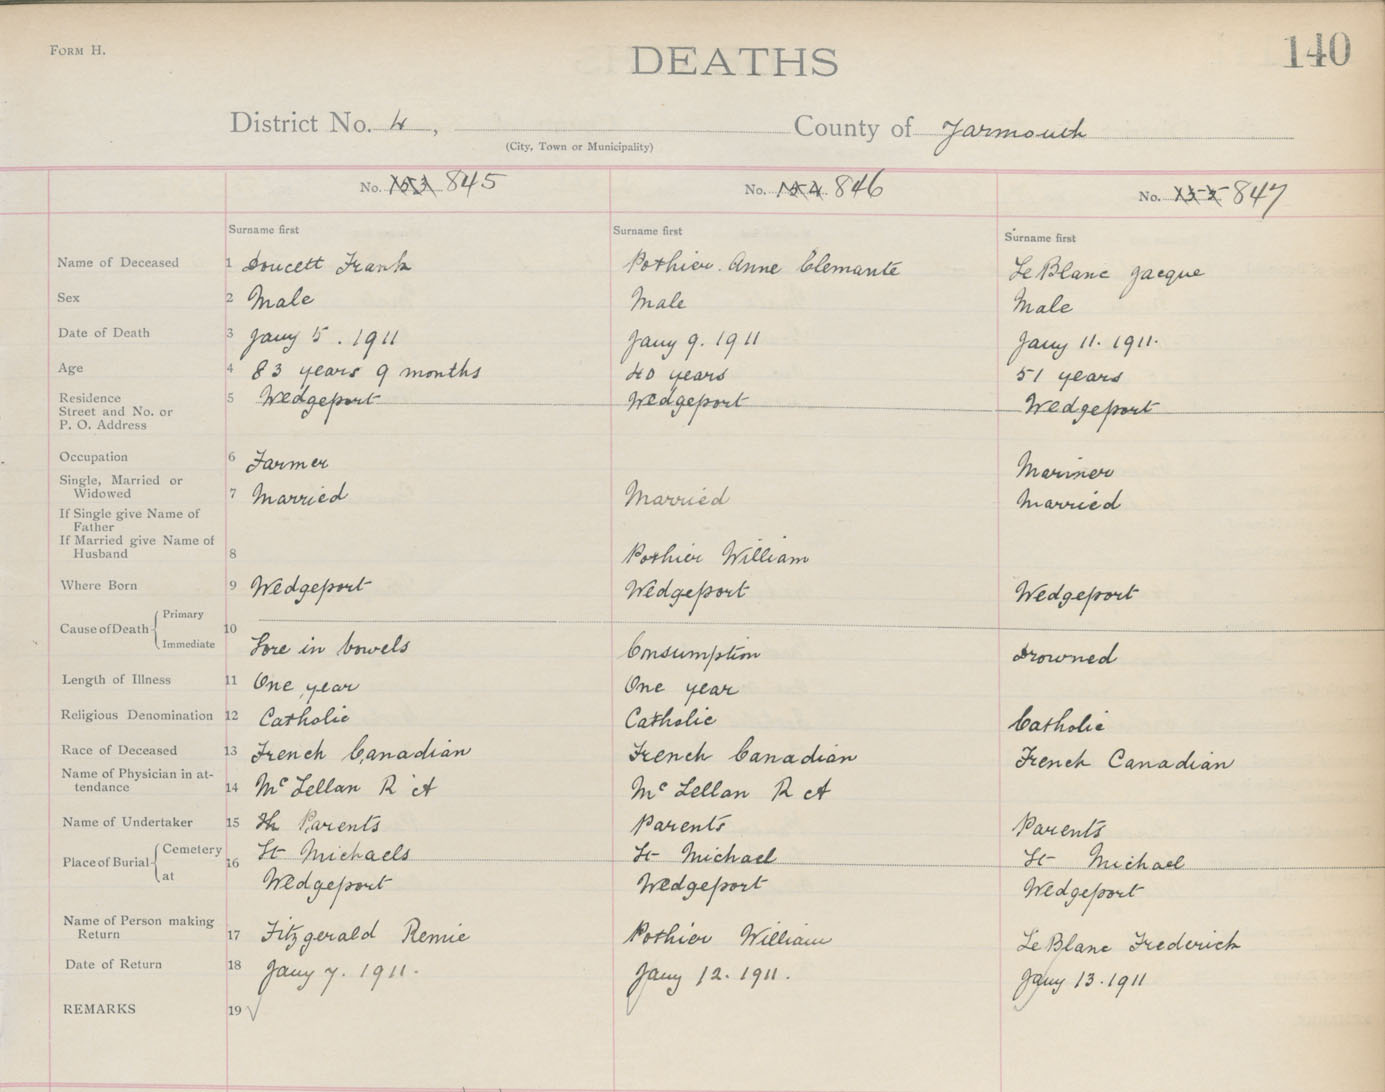 FORM H.
DEATHS
140
District No. 4, County of Yarmouth
(City, Town or Municipality)
No. 153 845 No. 154 846 No. 155 847
Surname first Surname first Surname first
Name of Deceased 1 Doucett Frank Pothier. Anne Clemante LeBlanc Jacque
Sex 2 Male Male Male
Date of Death 3 Jany 5. 1911 Jany 9. 1911 Jany 11. 1911.
Age 4 83 years 9 months 40 years 51 years
Residence 5 Wedgeport Wedgeport Wedgeport
Street and No. or
P. O. Address
Occupation 6 Farmer Mariner
Single, Married or
Widowed 7 Married Married Married
If Single give Name of
Father
If Married give Name of
Husband 8 Pothier William
Where Born 9 Wedgeport Wedgeport Wedgeport
Cause of Death 10 Primary
Immediate Sore in bowels Consumption Drowned
Length of Illness 11 One year One year
Religious Denomination 12 Catholic Catholic Catholic
Race of Deceased 13 French Canadian French Canadian French Canadian
Name of Physician in at-
tendance 14 McLellan R A McLellan R A
Name of Undertaker 15 Parents Parents Parents
Place of Burial 16 Cemetery St Michaels St Michael St Michael
at Wedgeport Wedgeport Wedgeport
Name of Person making
Return 17 Fitzgerald Remie Pothier William LeBlanc Frederick
Date of Return 18 Jany 7. 1911. Jany 12. 1911. Jany 13. 1911
REMARKS 19